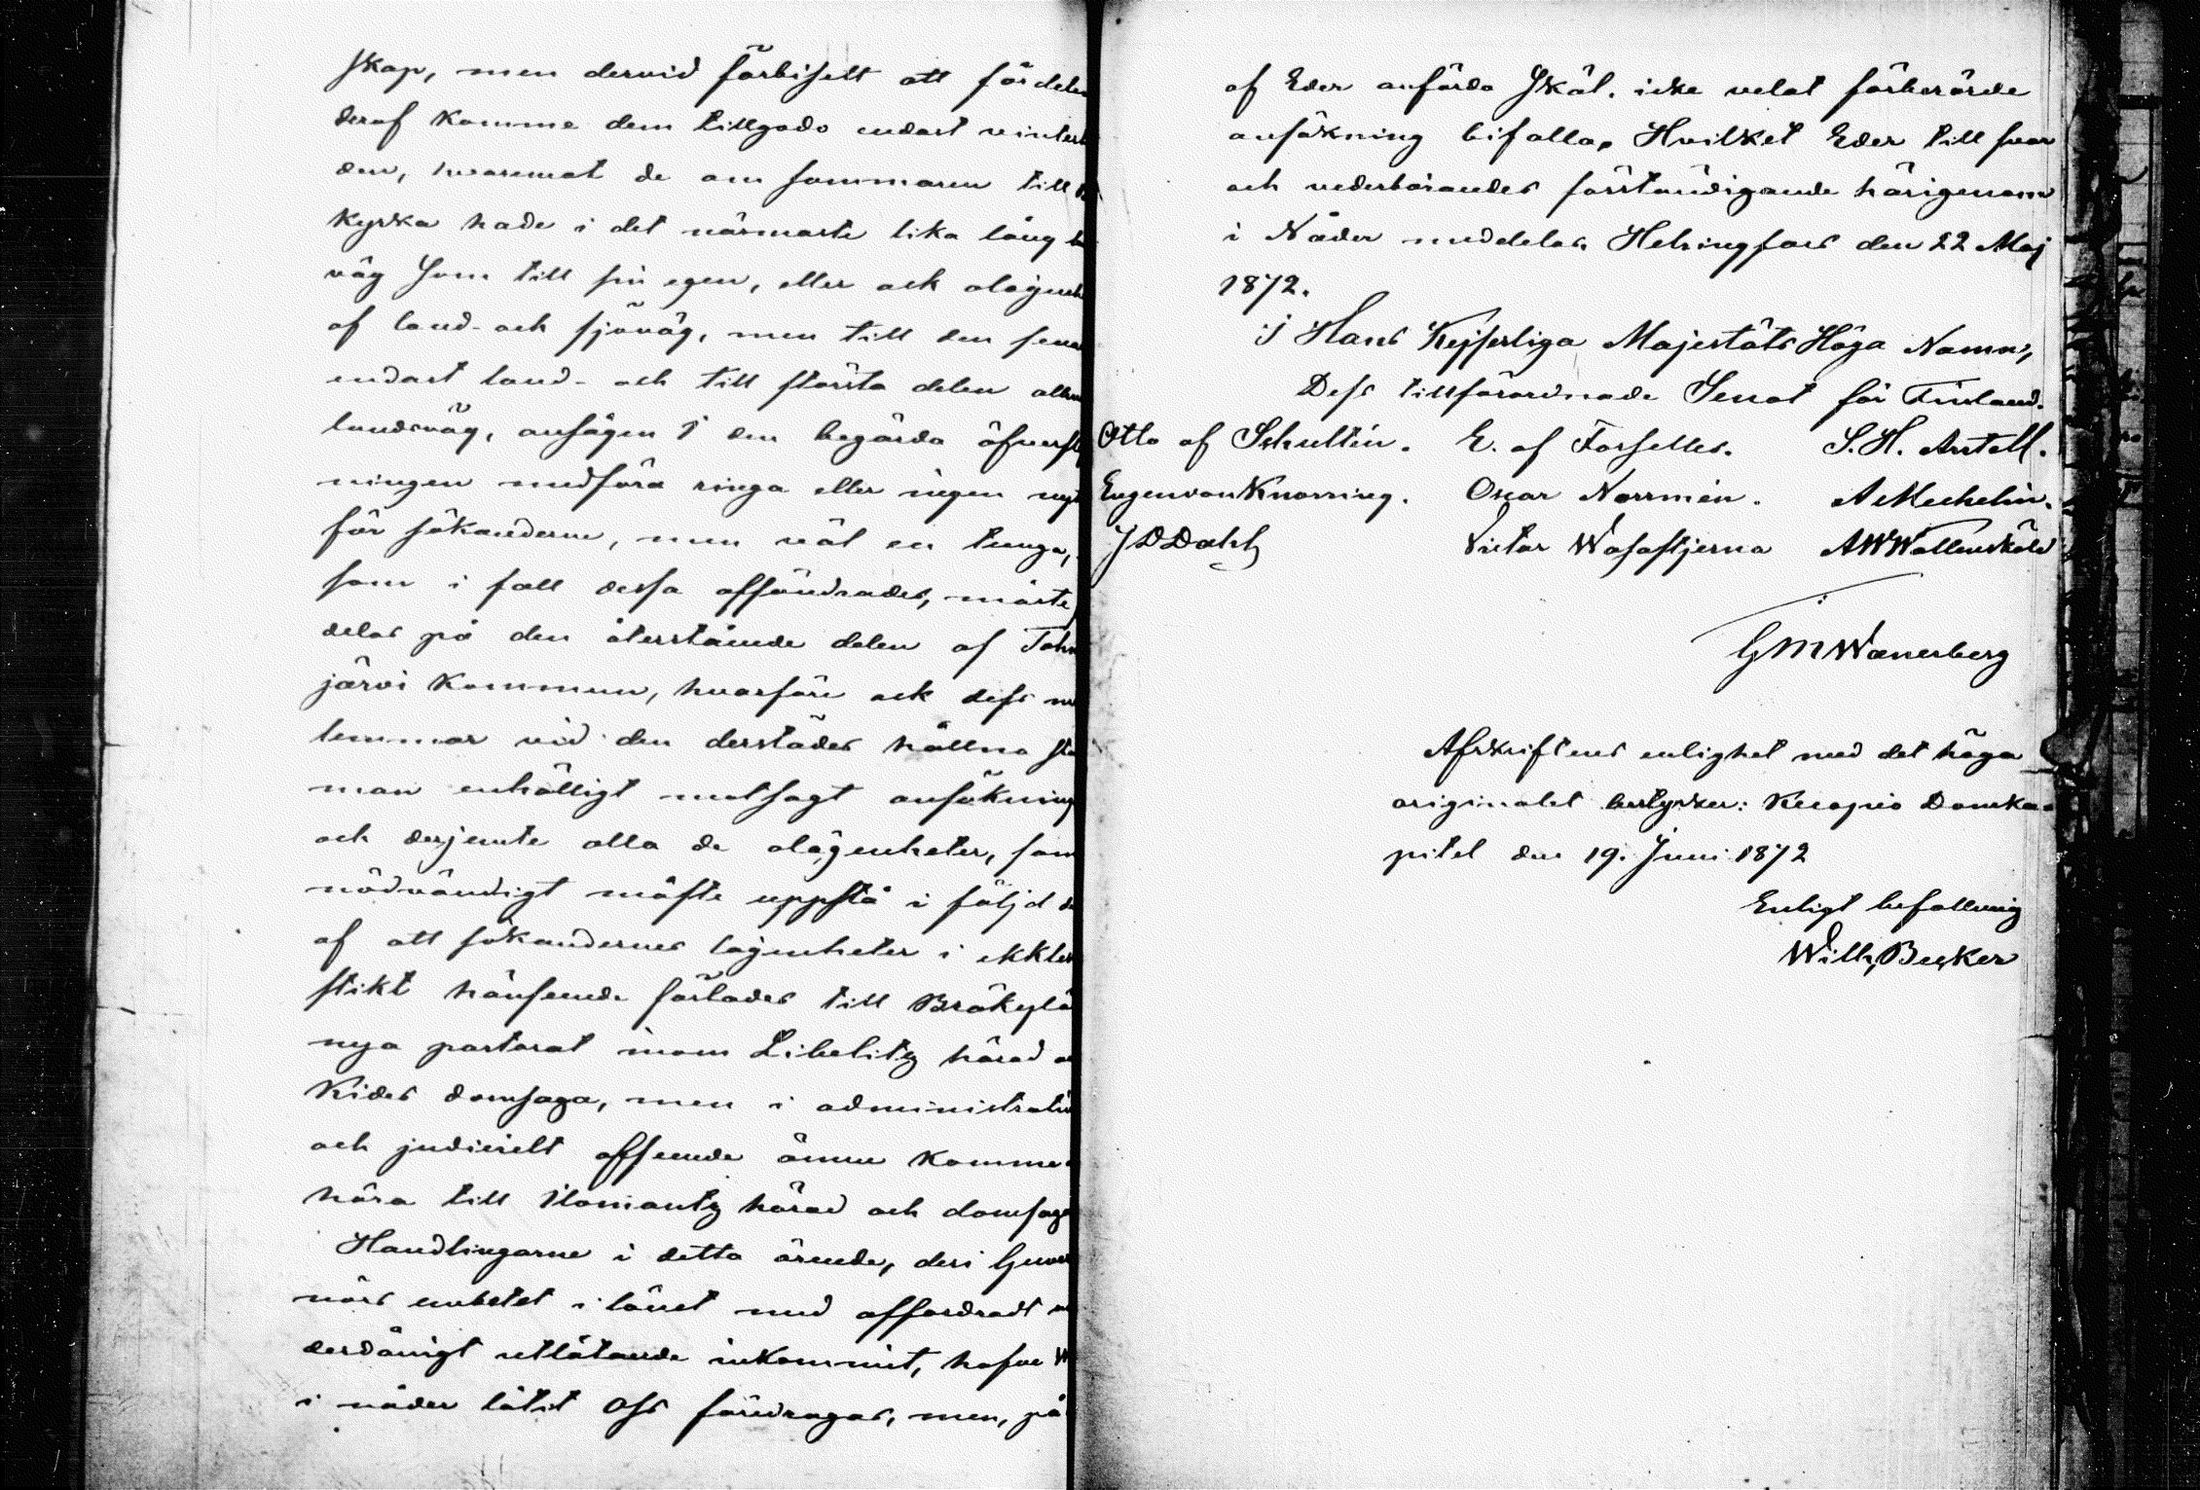 skap, men dervid förbisett att fördelen
deraf komme dem tillgodo endast vinterti
den, hvaremot de om sommaren till
kyrka hade i det närmaste lika lång
väg som till sin egen, eller ock olägenh
af land- och sjöväg, men till den sena
endast land- och till största delen allm
landsväg, ansågen I den begärda öfverfly
ningen medföra ringa eller ingen nyt
för sökanderne, men väl en tunga,
som i fall dessa afsöndrades, måste
delas på den återstående delen af Tohm
järvi kommun, hvarföre ock dess
lemmar vid den derstädes hållna stä
man enhälligt motsagt ansökning
och derjemte alla de olägenheter, som
nödvändigt måste uppstå i följd
af att sökandernes lägenheter i ekkles
stikt hänseende förlades till Bräkylä
nya pastorat inom Libelitz härad
Kides domsaga, men i administrativ
och judicielt afseende ännu komme
höra till Ilomantz härad och domsaga
Handlingarne i detta ärende, deri Guver
nörs embetet i länet med affordradt
derdånigt utlåtande inkommit, hafve W
i nåder låtit Oss föredragas, men, på
af Eder anförda skäl, icke velat förberörde
ansökning bifalla. Hvilket Eder till svar
och vederbörandes förståndigande härigenom
i Nåder meddelas. Helsingfors den 22 Maj
1872.
I Hans Kejserliga Majestäts Höga Namn,
Dess tillförordnade Senat för Finland.
Otto af Schultén. E. af Forselles. S. H. Antell.
Eugen von Knorring. Oscar Norrmén. A Mechelin.
J D Dahl Victor Wasastjerna A W Wallensköld
G M Wænerberg
Afskriftens enlighet med det höga
originalet bestyrker: Kuopio Domka-
pitel den 19. Juni 1872
Enligt befallning
Wilh. Becker